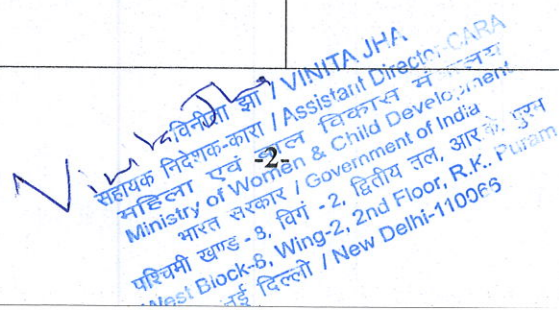 Vinita Jha
विनीता झा / VINITA JHA
सहायक निदेशक-कारा / Assistant Director-CARA
महिला एवं बाल विकास मंत्रालय
Ministry of Women & Child Development
-2-
भारत सरकार / Government of India
पश्चिमी खण्ड - 8, विंग -2, द्वितीय तल, आर.के. पुरम
West Block-8, Wing-2, 2nd Floor, R.K. Puram
नई दिल्ली / New Delhi-110066